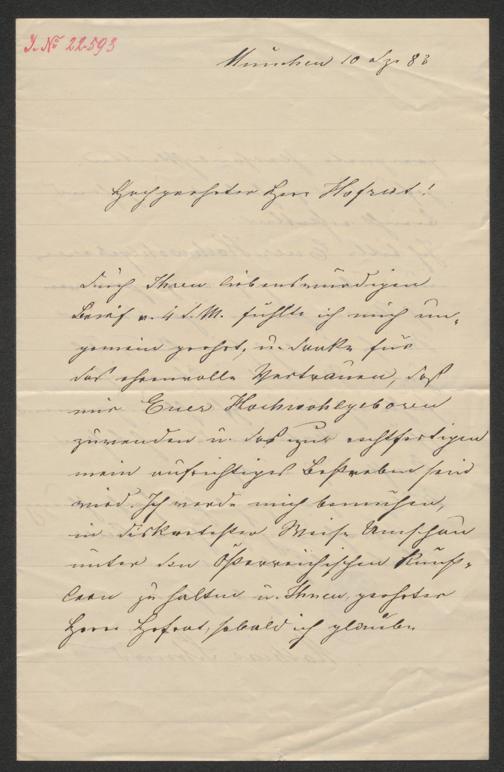 J. № 22593
München 10 Dz. 83
Hochgeehrter Herr Hofrat!
Durch Ihren liebenswürdigen
Brief v. 4 d. M. fühlte ich mich un-
gemein geehrt, u. danke für
das ehrenvolle Vertrauen, daß
mir Euer Hochwohlgeboren
zuwenden u. das zu rechtfertigen
mein aufrichtiges Bestreben sein
wird. Ich werde mich bemühen,
in diskretester Weise Umschau
unter den Österreichischen Künst-
lern zu halten u. Ihnen, geehrter
Herr Hofrat, sobald ich glaube